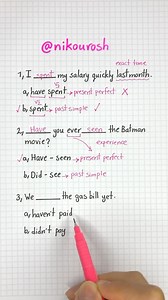 @nikourosh
exact time
1, I spent my salary quickly last month.
v3
a, have spent → present perfect ✗
v2
✓ b, spent → past simple ✓
2, Have you ever seen the Batman
movie?
experience
✓ a, Have - seen → present perfect
b, Did - see → past simple
3, We ______ the gas bill yet.
a, haven't paid
b, didn't pay